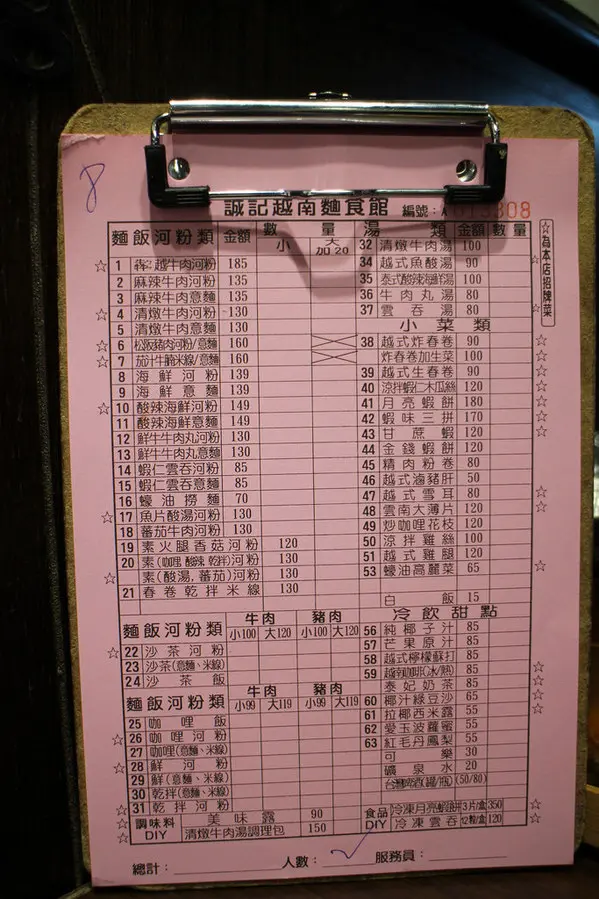 8
誠記越南麵食館 編號:A013808
☆為本店招牌菜
麵飯河粉類 金額 數量 小 大加20
☆ 1 越牛肉河粉 185
2 麻辣牛肉河粉 135
3 麻辣牛肉意麵 135
☆ 4 清燉牛肉河粉 130
5 清燉牛肉意麵 130
☆ 6 松阪豬肉河粉/意麵 160
☆ 7 茄汁牛腩米線/意麵 160
8 海鮮河粉 139
9 海鮮意麵 139
☆ 10 酸辣海鮮河粉 149
11 酸辣海鮮意麵 149
12 鮮牛牛肉丸河粉 130
13 鮮牛牛肉丸意麵 130
14 蝦仁雲吞河粉 85
15 蝦仁雲吞意麵 85
16 蠔油撈麵 70
☆ 17 魚片酸湯河粉 130
18 蕃茄牛肉河粉 130
19 素火腿香菇河粉 120
20 素(咖哩 酸辣 乾拌)河粉 130
素(酸湯,蕃茄)河粉 130
21 春卷乾拌米線 130
麵飯河粉類 牛肉 豬肉
小100 大120 小100 大120
☆ 22 沙茶河粉
23 沙茶(意麵、米線)
24 沙茶飯
麵飯河粉類 牛肉 豬肉
小99 大119 小99 大119
25 咖哩飯
☆ 26 咖哩河粉
27 咖哩(意麵、米線)
☆ 28 鮮河粉
29 鮮(意麵、米線)
30 乾拌(意麵、米線)
☆ 31 乾拌河粉
☆ 調味料DIY 美味露 90
☆ 清燉牛肉湯調理包 150
湯類 金額 數量
32 清燉牛肉湯 100
34 越式魚酸湯 90
35 泰式酸辣海鮮湯 100
36 牛肉丸湯 80
37 雲吞湯 80
小菜類
38 越式炸春卷 90
炸春卷加生菜 100
39 越式生春卷 90
40 涼拌蝦仁木瓜絲 120
41 月亮蝦餅 180
42 蝦味三拼 170
43 甘蔗蝦 120
44 金錢蝦餅 120
45 精肉粉卷 80
46 越式滷豬肝 50
47 越式雪耳 80
48 雲南大薄片 120
49 炒咖哩花枝 120
50 涼拌雞絲 100
51 越式雞腿 120
53 蠔油高麗菜 65
白飯 15
冷飲甜點
56 純椰子汁 85
57 芒果原汁 85
58 越式檸檬蘇打 85
59 越南咖啡(冰/熱) 85
泰妃奶茶 85
60 椰汁綠豆沙 65
61 拉椰西米露 55
62 愛玉菠蘿蜜 55
63 紅毛丹鳳梨 55
可樂 30
礦泉水 20
台灣啤酒(罐/瓶) (50/80)
食品DIY 冷凍月亮蝦餅 3片/盒 350
冷凍雲吞 12粒/盒 120
總計: 人數: 服務員: